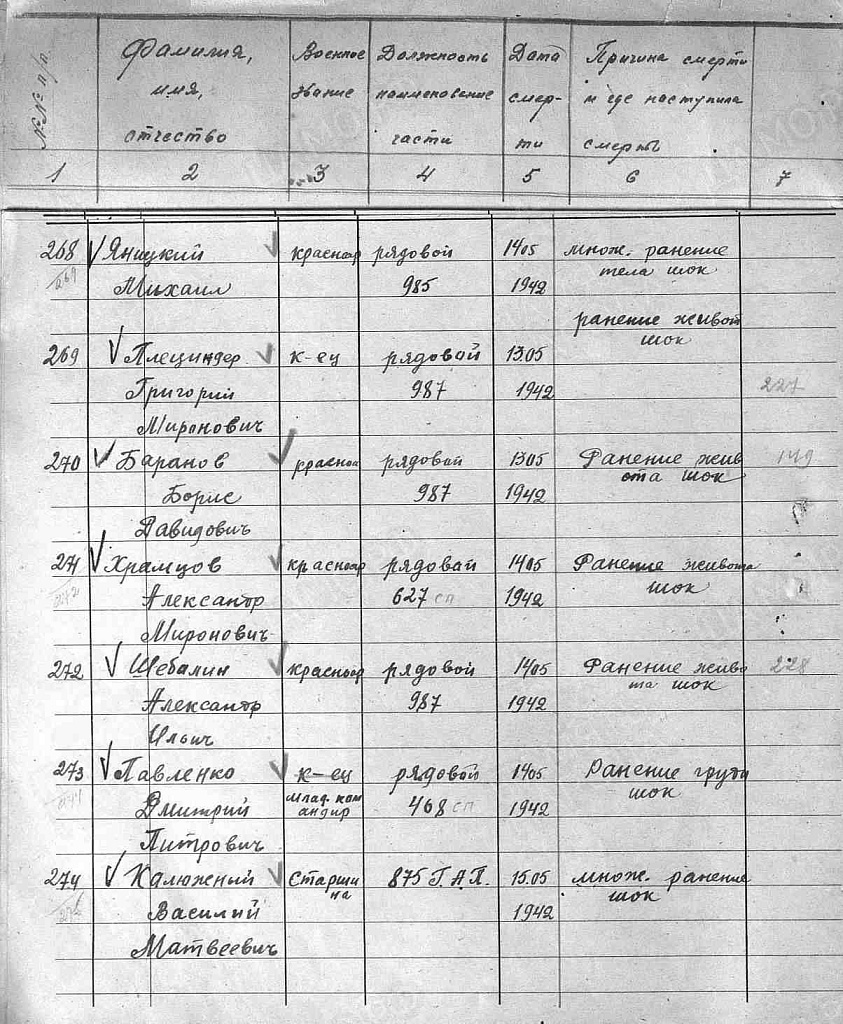 №№ п/п. Фамилия, имя, отчество Военное звание Должность наименование части Дата смерти Причина смерти и где наступила смерть
1 2 3 4 5 6 7
268 Яницкий красноар рядовой 14 05 множ. ранение
269 Михаил 985 1942 тела шок
ранение живот
269 Плециндер к-ец рядовой 13.05 шок
Григорий 987 1942 227
Миронович
270 Баранов красноа рядовой 13 05 Ранение жив 149
Борис 987 1942 ота шок
Давидович
271 Храмцов красноар рядовой 14 05 Ранение живота
272 Александр 627 сп 1942 шок
Миронович
272 Шебалин красноар рядовой 14 05 Ранение живо 228
Александр 987 1942 та шок
Ильич
273 Павленко к-ец рядовой 14 05 Ранение груди
Дмитрий млад. ком андир 468 сп 1942 шок
Питрович
274 Калюжный Старши на 875 Г.А.П. 15.05 множ. ранение
Василий 1942 шок
Матвеевич